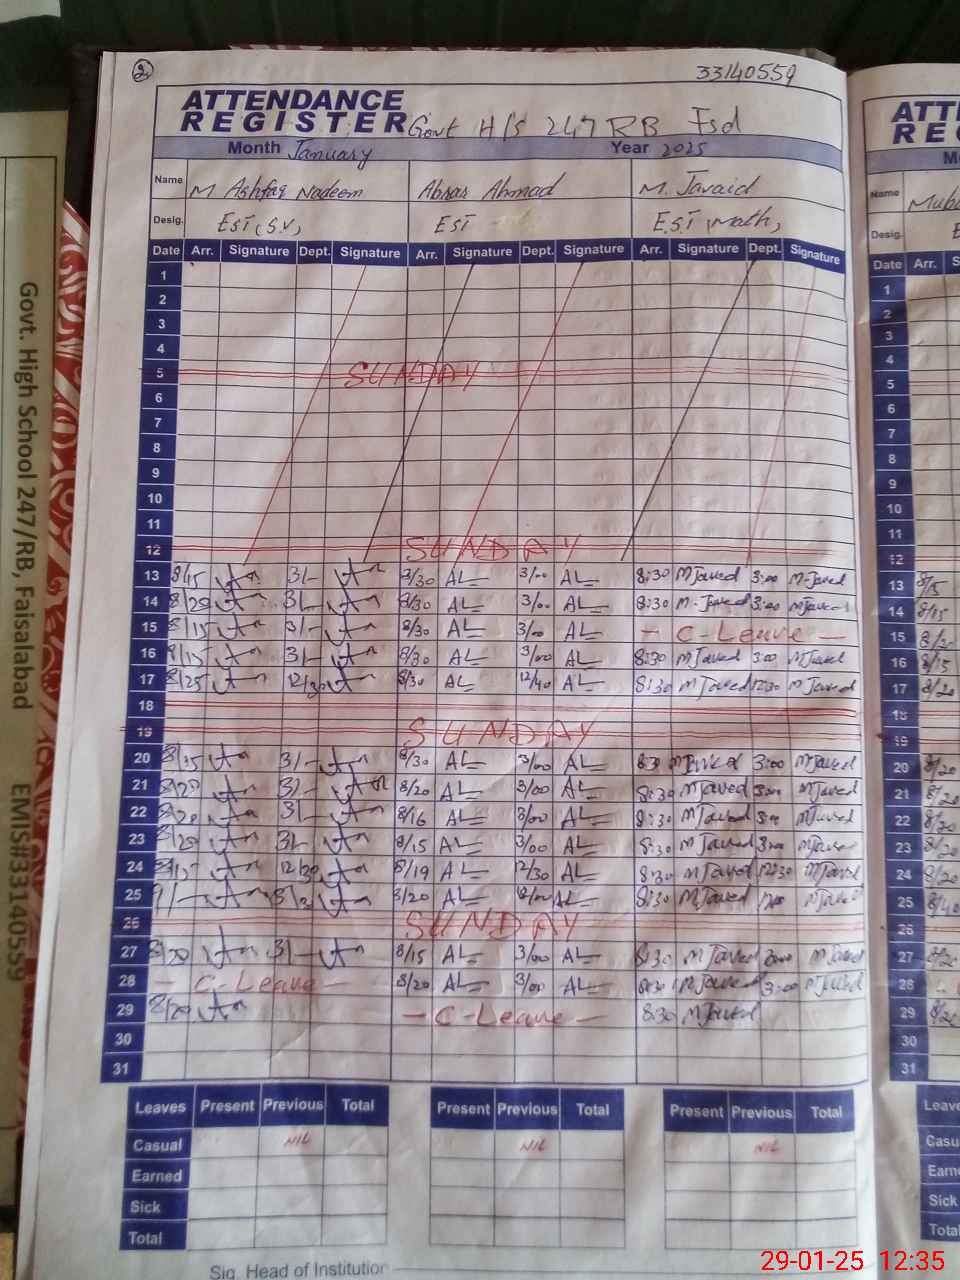 2
33140559
ATTENDANCE
REGISTER Govt H/S 247 RB Fsd
Month January Year 2025
Name M. Ashfaq Nadeem Absar Ahmad M. Javaid
Desig. EST (S.V) EST EST (Math)
Date Arr. Signature Dept. Signature Arr. Signature Dept. Signature Arr. Signature Dept. Signature
1
2
3
4
5 SUNDAY
6
7
8
9
10
11
12 SUNDAY
13 8/15 3/- 8/30 AL 3/00 AL 8:30 M Javed 3:00 M. Javed
14 8/20 3/- 8/30 AL 3/00 AL 8:30 M. Javed 3:00 M Javed
15 8/15 3/- 8/30 AL 3/00 AL - C-Leave -
16 8/15 3/- 8/30 AL 3/00 AL 8:30 M Javed 3:00 M Javed
17 8/25 12/30 8/30 AL 12/40 AL 8:30 M Javed 12:30 M Javed
18
19 SUNDAY
20 3/- 8/30 AL 3/00 AL 8:30 M Javed 3:00 M Javed
21 3/- 8/20 AL 3/00 AL 8:30 M Javed 3:00 M Javed
22 8/20 3/- 8/16 AL 3/00 AL 8:30 M Javed 3:00 M Javed
23 8/20 3/- 8/15 AL 3/00 AL 8:30 M Javed 3:00 M Javed
24 12/30 8/19 AL 12/30 AL 8:30 M Javed 12:30 M Javed
25 9/- 8/20 AL AL 8:30 M Javed M Javed
26 SUNDAY
27 8/20 3/- 8/15 AL 3/00 AL 8:30 M Javed 3:00 M Javed
28 - C-Leave - 8/20 AL 3/00 AL 8:30 M Javed 3:00 M Javed
29 8/20 - C-Leave - 8:30 M Javed
30
31
Leaves Present Previous Total Present Previous Total Present Previous Total
Casual NIL NIL NIL
Earned
Sick
Total
Sig. Head of Institution
Govt. High School 247/RB, Faisalabad EMIS#33140559
ATT
RE
Name
Desig.
Date Arr. S
1
2
3
4
5
6
7
8
9
10
11
12
13 8/15
14 8/15
15 8/20
16 8/15
17 8/20
18
19
20 8/20
21 8/20
22 8/20
23 8/20
24 8/20
25 8/40
26
27 8/20
28
29 8/20
30
31
Leave
Casu
Earn
Sick
Total
29-01-25 12:35